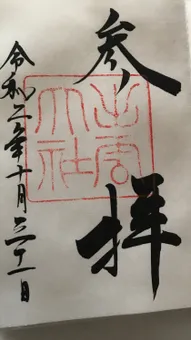 参拝
出雲
大社
令和二年十月三十一日